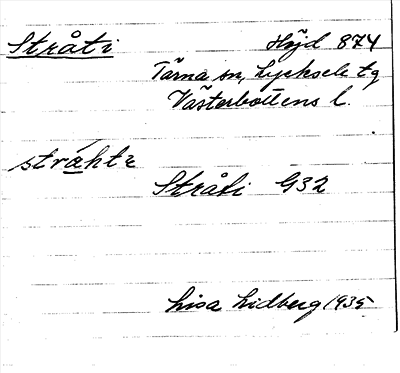 Stråti Höjd 874
Tärna sn, Lycksele tg
Västerbottens l.
Stråti G32
Lisa Lidberg 1935